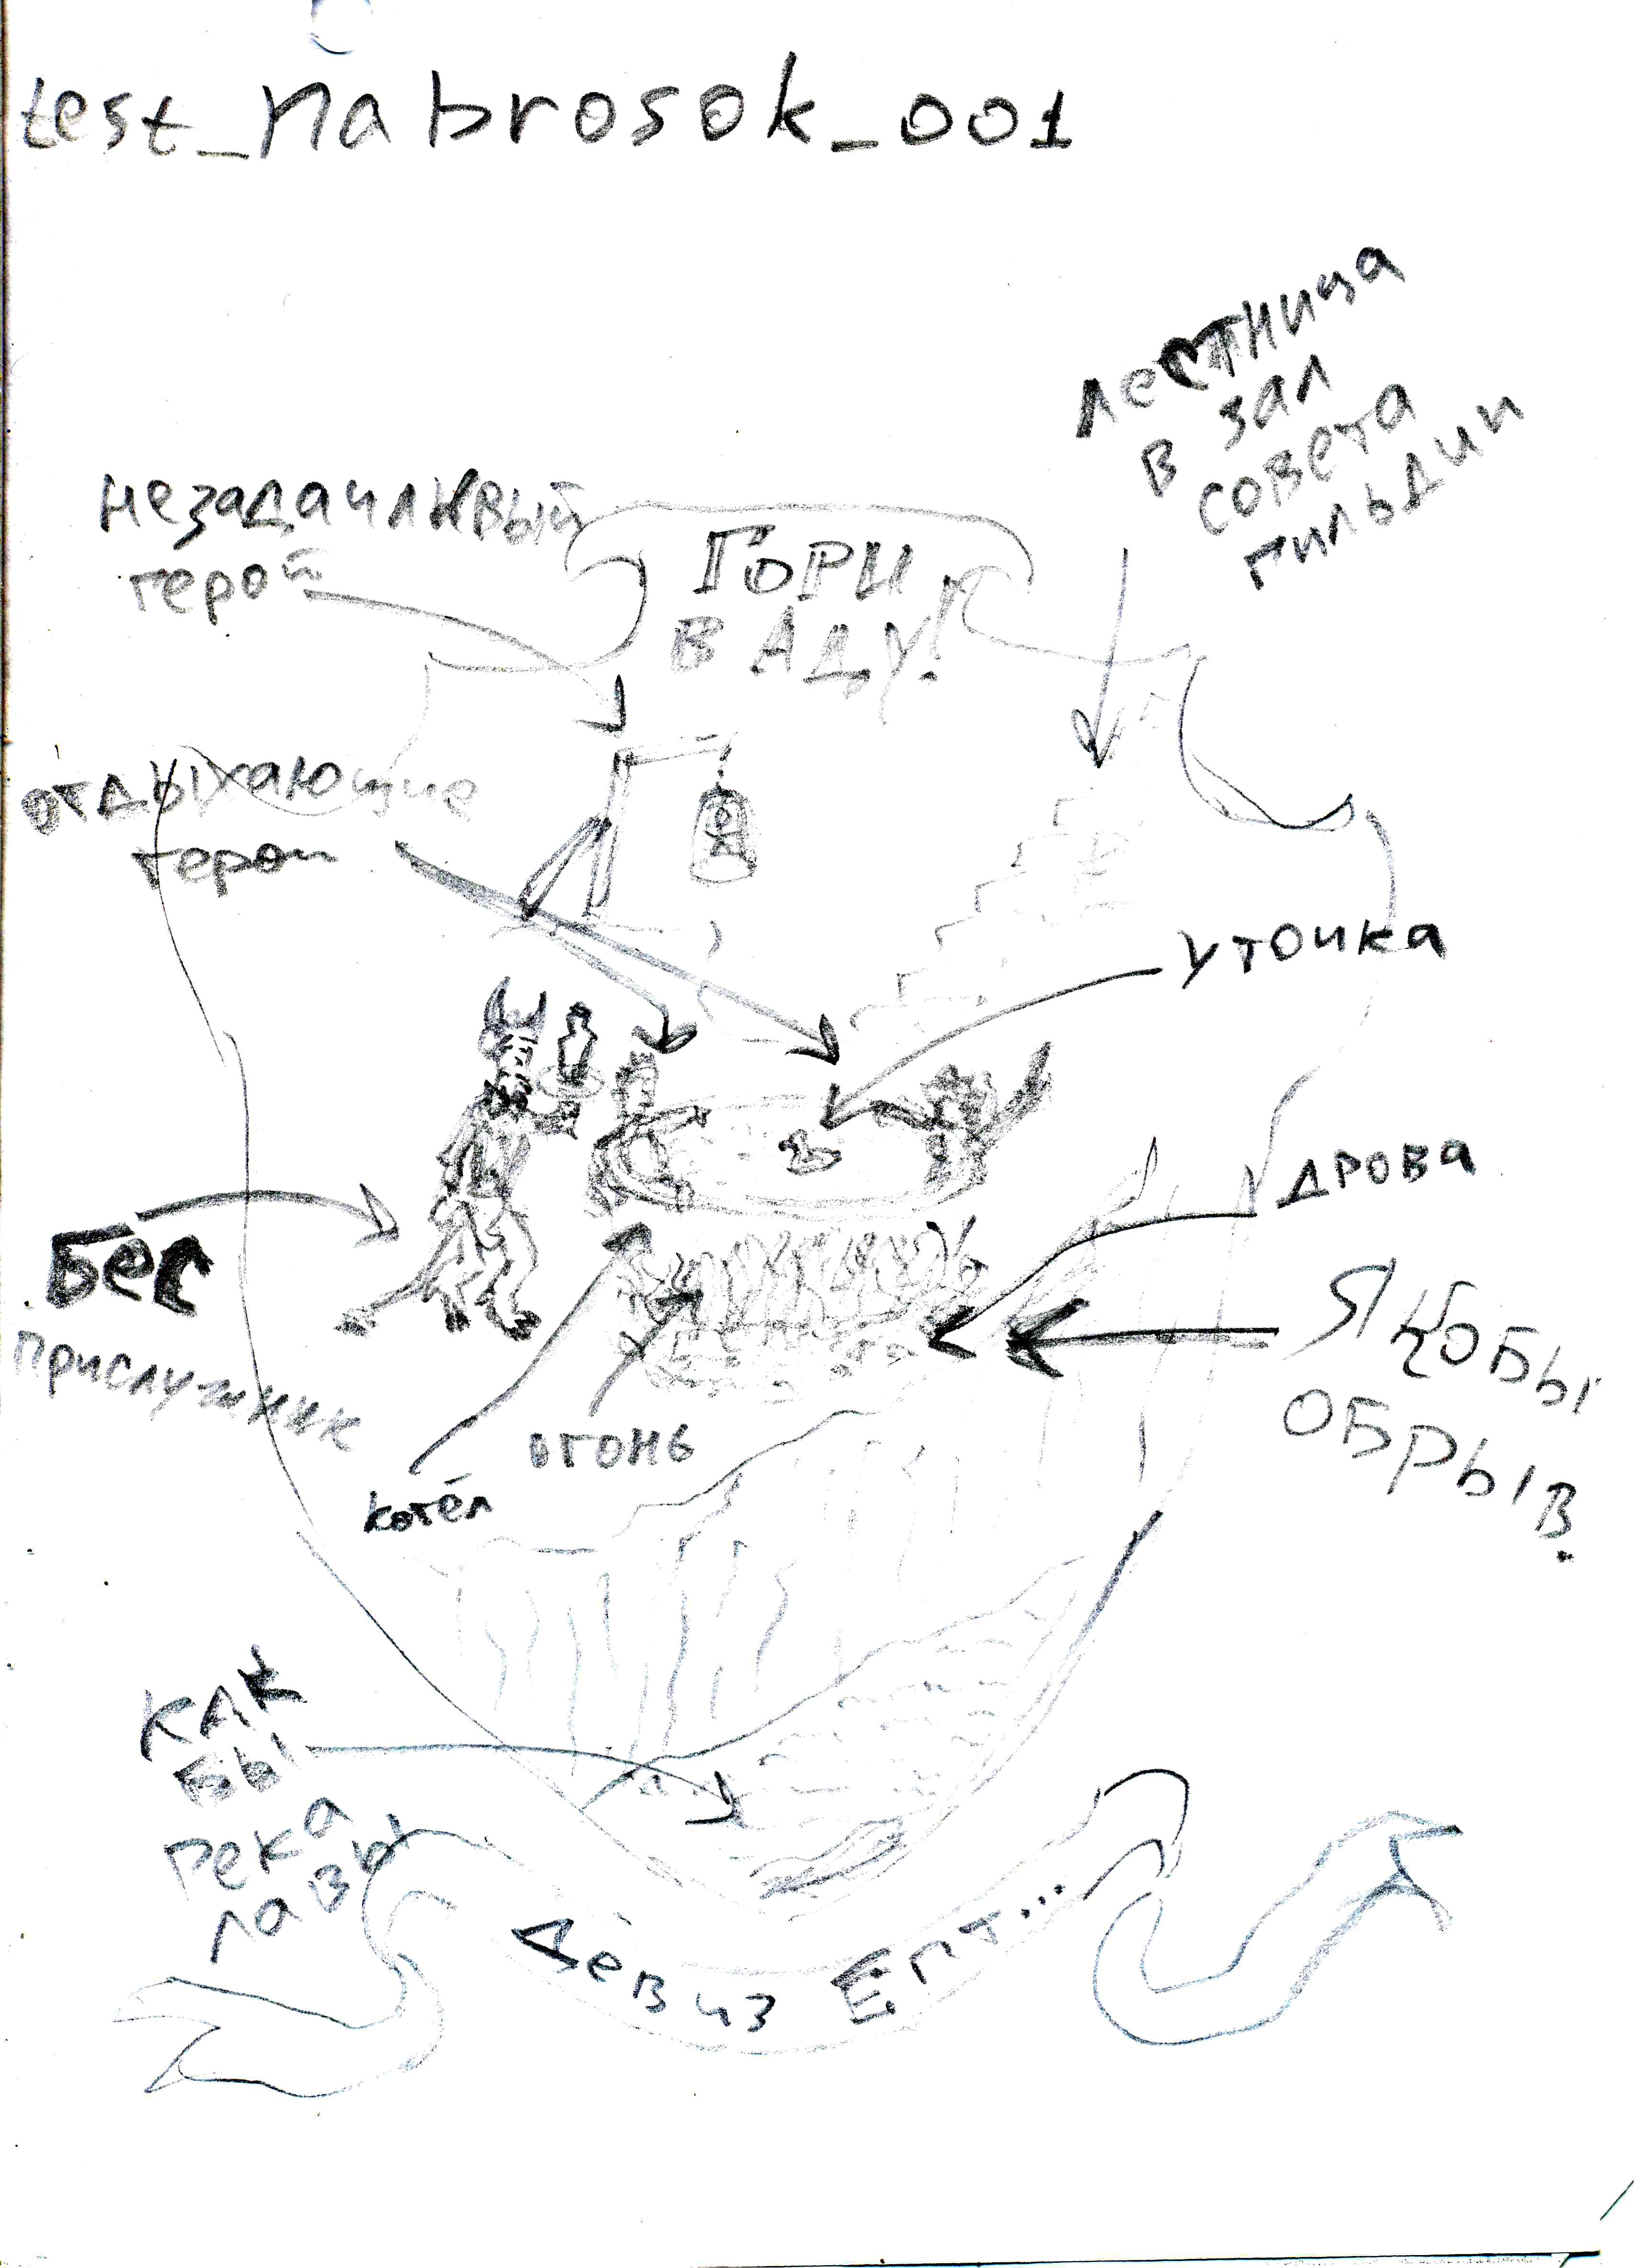 test_nabrosok_001
лестница
в зал
совета
гильдии
незадачливый
герой
Гори
в аду!
отдыхающие
герои
уточка
дрова
Бес
прислужник
Якобы
обрыв.
огонь
котёл
как
бы
река
лавы
Девиз Епт...